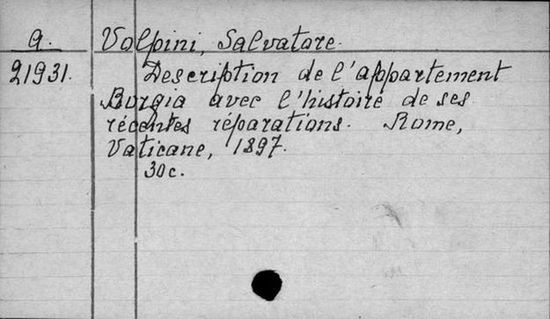 a. Volpini, Salvatore.
21931. Description de l'appartement
Borgia avec l'histoire de ses
récentes réparations. Rome,
Vaticane, 1897.
30 c.